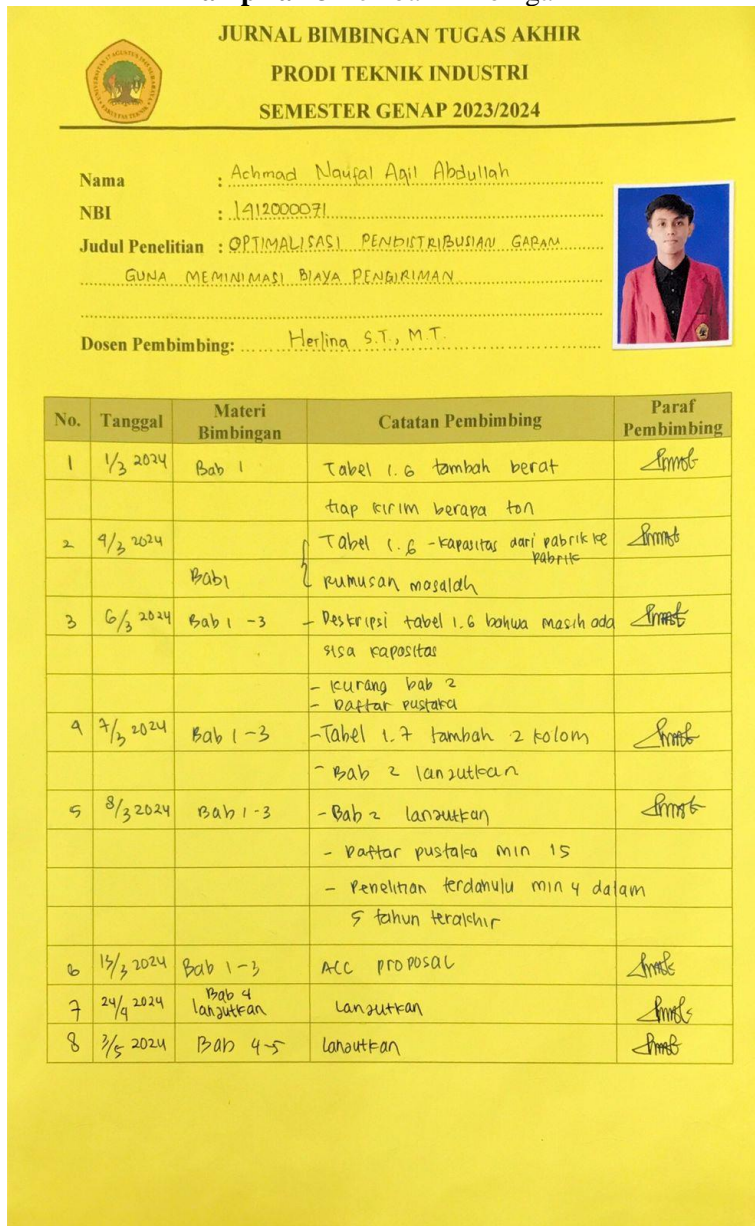 JURNAL BIMBINGAN TUGAS AKHIR
PRODI TEKNIK INDUSTRI
SEMESTER GENAP 2023/2024
Nama : Achmad Naufal Aqil Abdullah
NBI : 1412000071
Judul Penelitian : OPTIMALISASI PENDISTRIBUSIAN GARAM
GUNA MEMINIMASI BIAYA PENGIRIMAN
Dosen Pembimbing: Herlina S.T., M.T.
No. Tanggal Materi Bimbingan Catatan Pembimbing Paraf Pembimbing
1 1/3 2024 Bab 1 Tabel 1.6 tambah berat
tiap kirim berapa ton
2 4/3 2024 Tabel 1.6 - kapasitas dari pabrik ke pabrik
Bab 1 rumusan masalah
3 6/3 2024 Bab 1 - 3 - Deskripsi tabel 1.6 bahwa masih ada
sisa kapasitas
- kurang bab 2
- Daftar pustaka
4 7/3 2024 Bab 1 - 3 - Tabel 1.7 tambah 2 kolom
- Bab 2 lanjutkan
5 8/3 2024 Bab 1 - 3 - Bab 2 lanjutkan
- Daftar pustaka min 15
- Penelitian terdahulu min 4 dalam
5 tahun terakhir
6 15/3 2024 Bab 1 - 3 ACC proposal
7 24/4 2024 Bab 4 lanjutkan Lanjutkan
8 3/5 2024 Bab 4-5 Lanjutkan